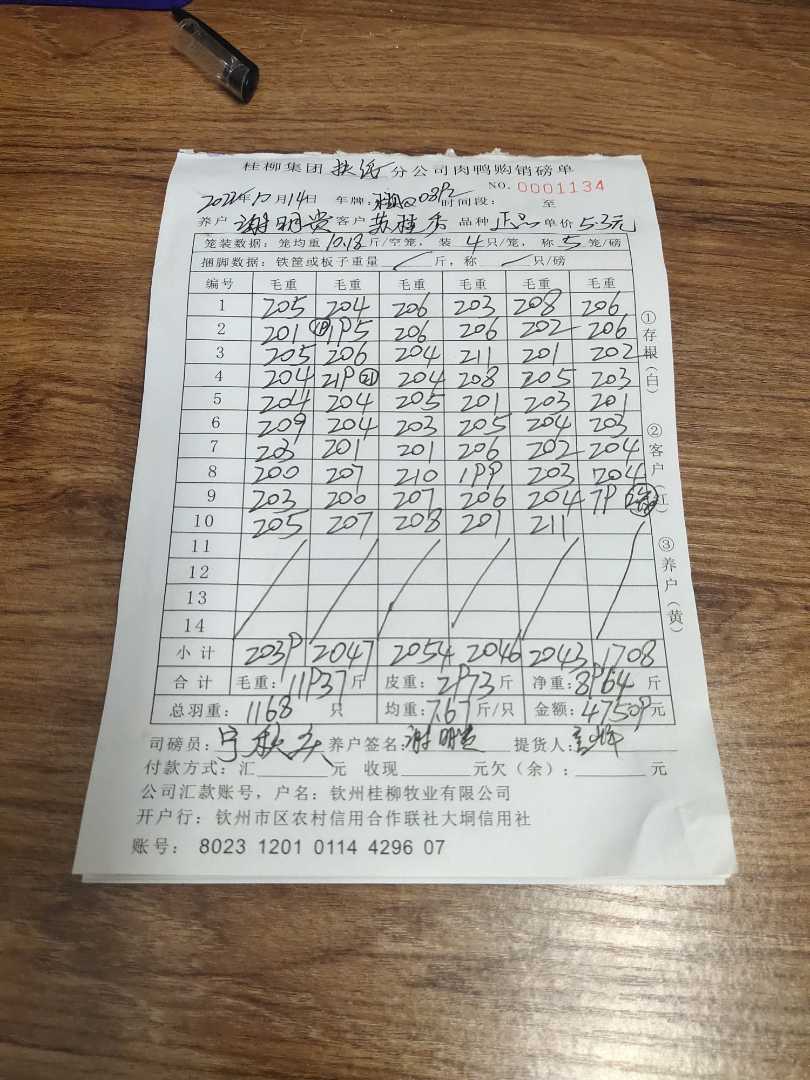 桂柳集团 扶绥 分公司肉鸭购销磅单
NO. 0001134
2022年12月14日 车牌: 时间段: 至
养户 谢明贵 客户 苏桂 品种 正品 单价 5.3元
笼装数据:笼均重 10.18 斤/空笼, 装 4 只/笼, 称 5 笼/磅
捆脚数据:铁筐或板子重量 / 斤,称 / 只/磅
编号 毛重 毛重 毛重 毛重 毛重 毛重
1 205 204 206 203 208 206
2 201 195 206 206 202 206
3 205 206 204 211 201 202
4 204 219 ㉑ 204 208 205 203
5 204 204 205 201 203 201
6 209 204 203 205 204 203
7 203 201 201 206 202 204
8 200 207 210 199 203 204
9 203 200 207 206 204 79
10 205 207 208 201 211
11
12
13
14
小计 2039 2047 2054 2046 2043 1708
合计 毛重: 11937 斤 皮重: 2973 斤 净重: 8964 斤
总羽重: 1168 只 均重: 7.67 斤/只 金额: 47509 元
司磅员: 养户签名: 谢明贵 提货人:
付款方式:汇 元 收现 元欠(余): 元
公司汇款账号,户名:钦州桂柳牧业有限公司
开户行:钦州市区农村信用合作联社大垌信用社
账号: 8023 1201 0114 4296 07
①存根(白)
②客户(红)
③养户(黄)